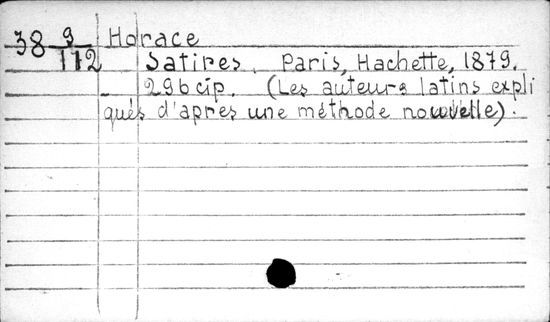 38 9/112 Horace
Satires. Paris, Hachette, 1879.
296 p. (Les auteurs latins expli
qués d'apres une méthode nouvelle).